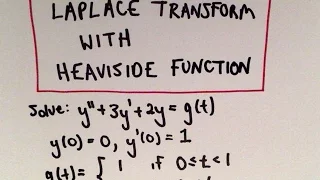 LAPLACE TRANSFORM
WITH
HEAVISIDE FUNCTION
Solve: y" + 3y' + 2y = g(t)
y(0) = 0, y'(0) = 1
g(t) = { 1 if 0≤t<1